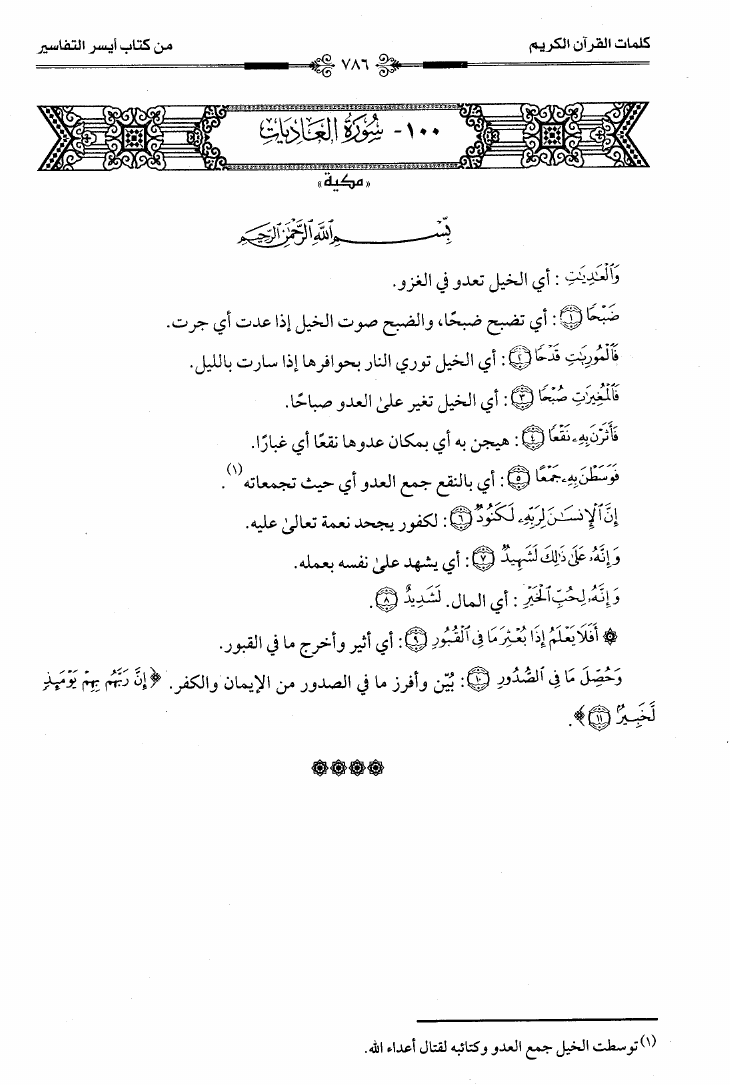 كلمات القرآن الكريم
٧٨٦
من كتاب أيسر التفاسير
١٠٠- سُورَةُ العَادِيَاتِ
«مكية»
بِسْمِ اللَّهِ الرَّحْمَٰنِ الرَّحِيمِ
وَٱلْعَٰدِيَٰتِ : أي الخيل تعدو في الغزو.
ضَبْحًا ١ : أي تضبح ضبحًا، والضبح صوت الخيل إذا عدت أي جرت.
فَٱلْمُورِيَٰتِ قَدْحًا ٢ : أي الخيل توري النار بحوافرها إذا سارت بالليل.
فَٱلْمُغِيرَٰتِ صُبْحًا ٣ : أي الخيل تغير علىٰ العدو صباحًا.
فَأَثَرْنَ بِهِۦ نَقْعًا ٤ : هيجن به أي بمكان عدوها نقعًا أي غبارًا.
فَوَسَطْنَ بِهِۦ جَمْعًا ٥ : أي بالنقع جمع العدو أي حيث تجمعاته(١).
إِنَّ ٱلْإِنسَٰنَ لِرَبِّهِۦ لَكَنُودٌ ٦ : لكفور يجحد نعمة تعالىٰ عليه.
وَإِنَّهُۥ عَلَىٰ ذَٰلِكَ لَشَهِيدٌ ٧ : أي يشهد علىٰ نفسه بعمله.
وَإِنَّهُۥ لِحُبِّ ٱلْخَيْرِ : أي المال. لَشَدِيدٌ ٨ .
۞ أَفَلَا يَعْلَمُ إِذَا بُعْثِرَ مَا فِى ٱلْقُبُورِ ٩ : أي أثير وأخرج ما في القبور.
وَحُصِّلَ مَا فِى ٱلصُّدُورِ ١٠ : بُيّن وأفرز ما في الصدور من الإيمان والكفر. ﴿إِنَّ رَبَّهُم بِهِمْ يَوْمَئِذٍ
لَّخَبِيرٌۢ ١١﴾.
(١) توسطت الخيل جمع العدو وكتائبه لقتال أعداء الله.